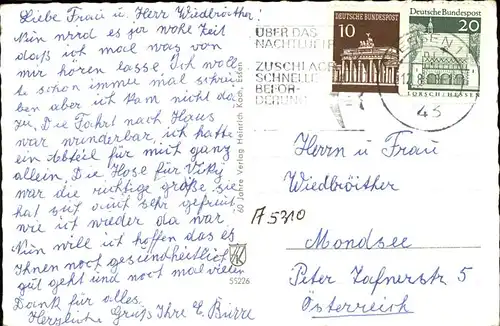 Liebe Frau u. Herr Wiedbröither!
Nun wird es ja wohl Zeit
daß ich mal was von
mir hören lasse. Ich wollte
schon immer mal schrei-
ben aber ich kam nicht da-
zu. Die Fahrt nach Haus
war wunderbar, ich hatte
ein Abteil für mich ganz
allein. Die Hose für Viky
war die richtige größe, sie
hat sich auch sehr gefreut
wie ich wieder da war
Nun will ich hoffen das es
Ihnen noch gesundheitlich
gut geht und noch mal vielen
Dank für alles.
Herzliche Grüß Ihre E. Burre
60 Jahre Verlag Heinrich Koch, Essen
55226
ÜBER DAS
NACHTLUFT
ZUSCHLAG
SCHNELLE
BEFÖR-
DERUNG
10
DEUTSCHE BUNDESPOST
Deutsche Bundespost
20
LORSCH/HESSEN
43
Herrn u Frau
Wiedbröither
A5310
Mondsee
Peter
5
Österreich